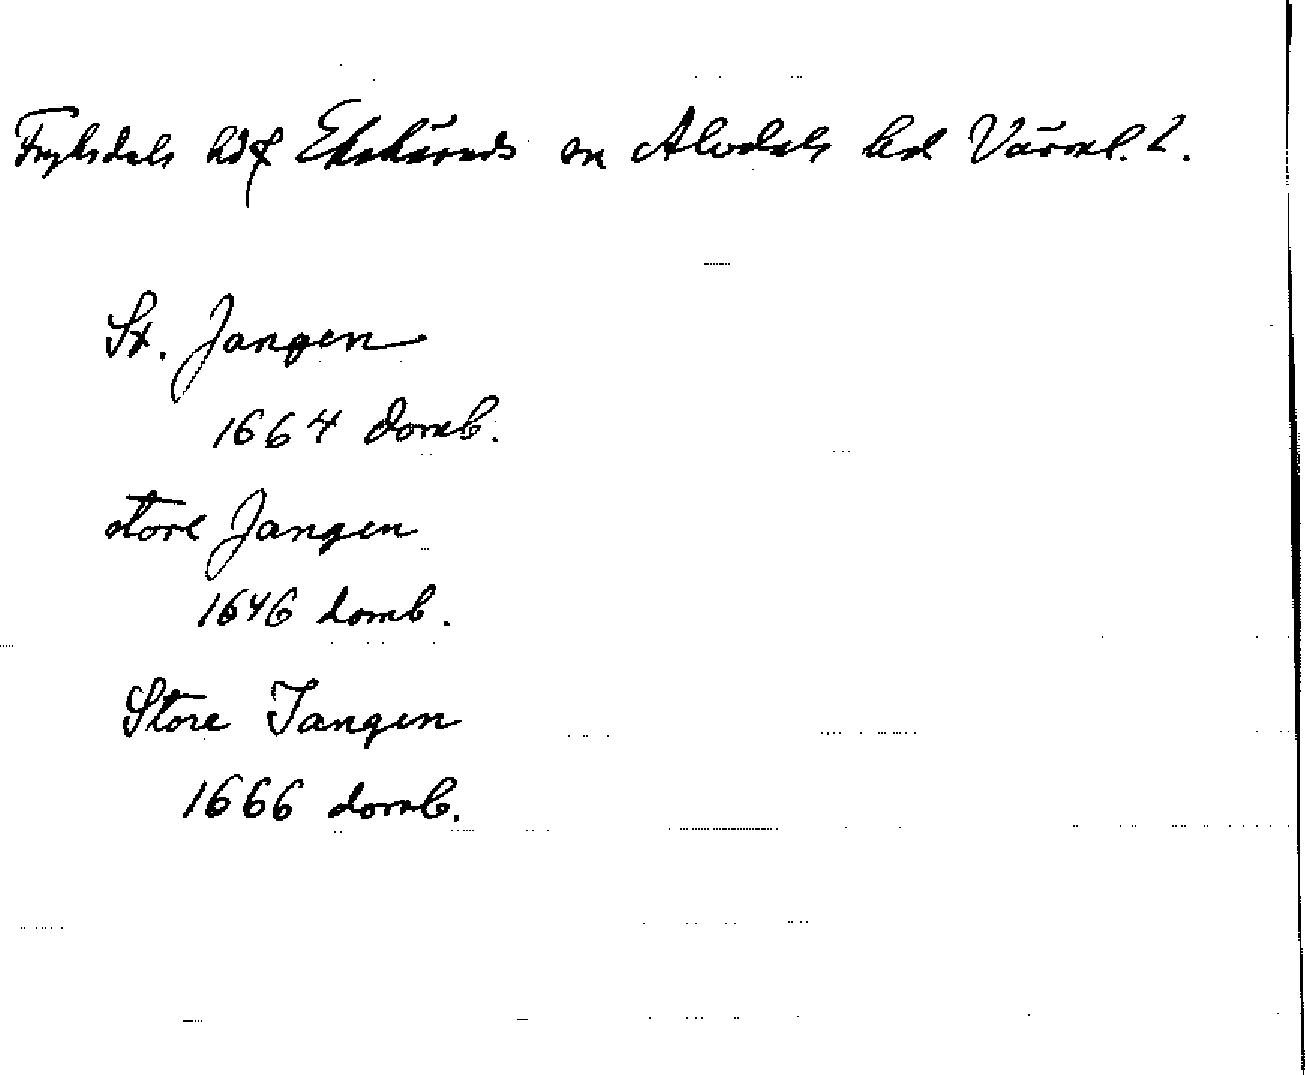 Fryksdals hd & Ekshärads sn Älvdals hd Värml. l.
St. Jangen
1664 domb.
store Jangen
1646 domb.
Store Jangen
1666 domb.